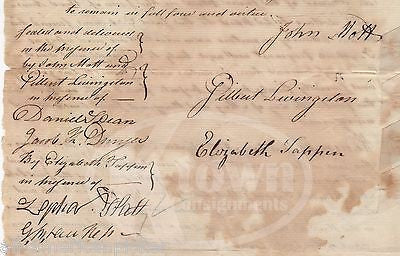 to remain in full force and virtue.
Sealed and delivered
in the presence of
by John Mott and
Gilbert Livingston
in presence of —
Daniel Dean
Jacob
By Elizabeth Tappen
in presence of —
John Mott
Gilbert Livingston
Elizabeth Tappen
consignments